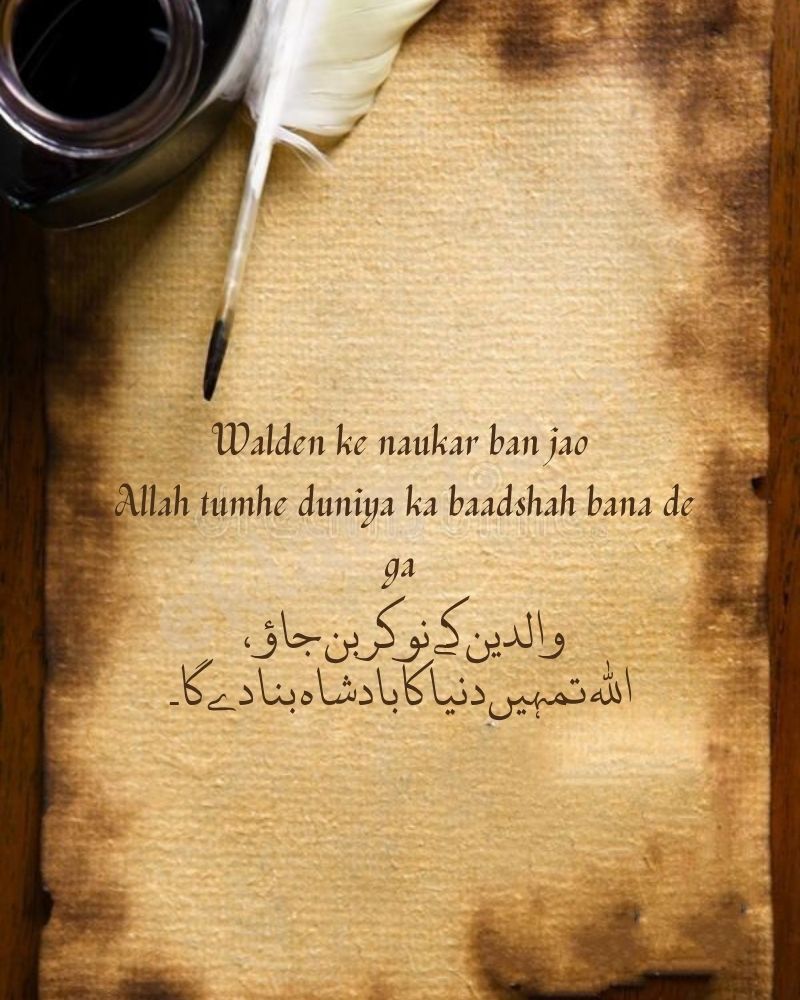 Walden ke naukar ban jao
Allah tumhe duniya ka baadshah bana de
ga
والدین کے نوکر بن جاؤ،
اللہ تمہیں دنیا کا بادشاہ بنا دے گا۔